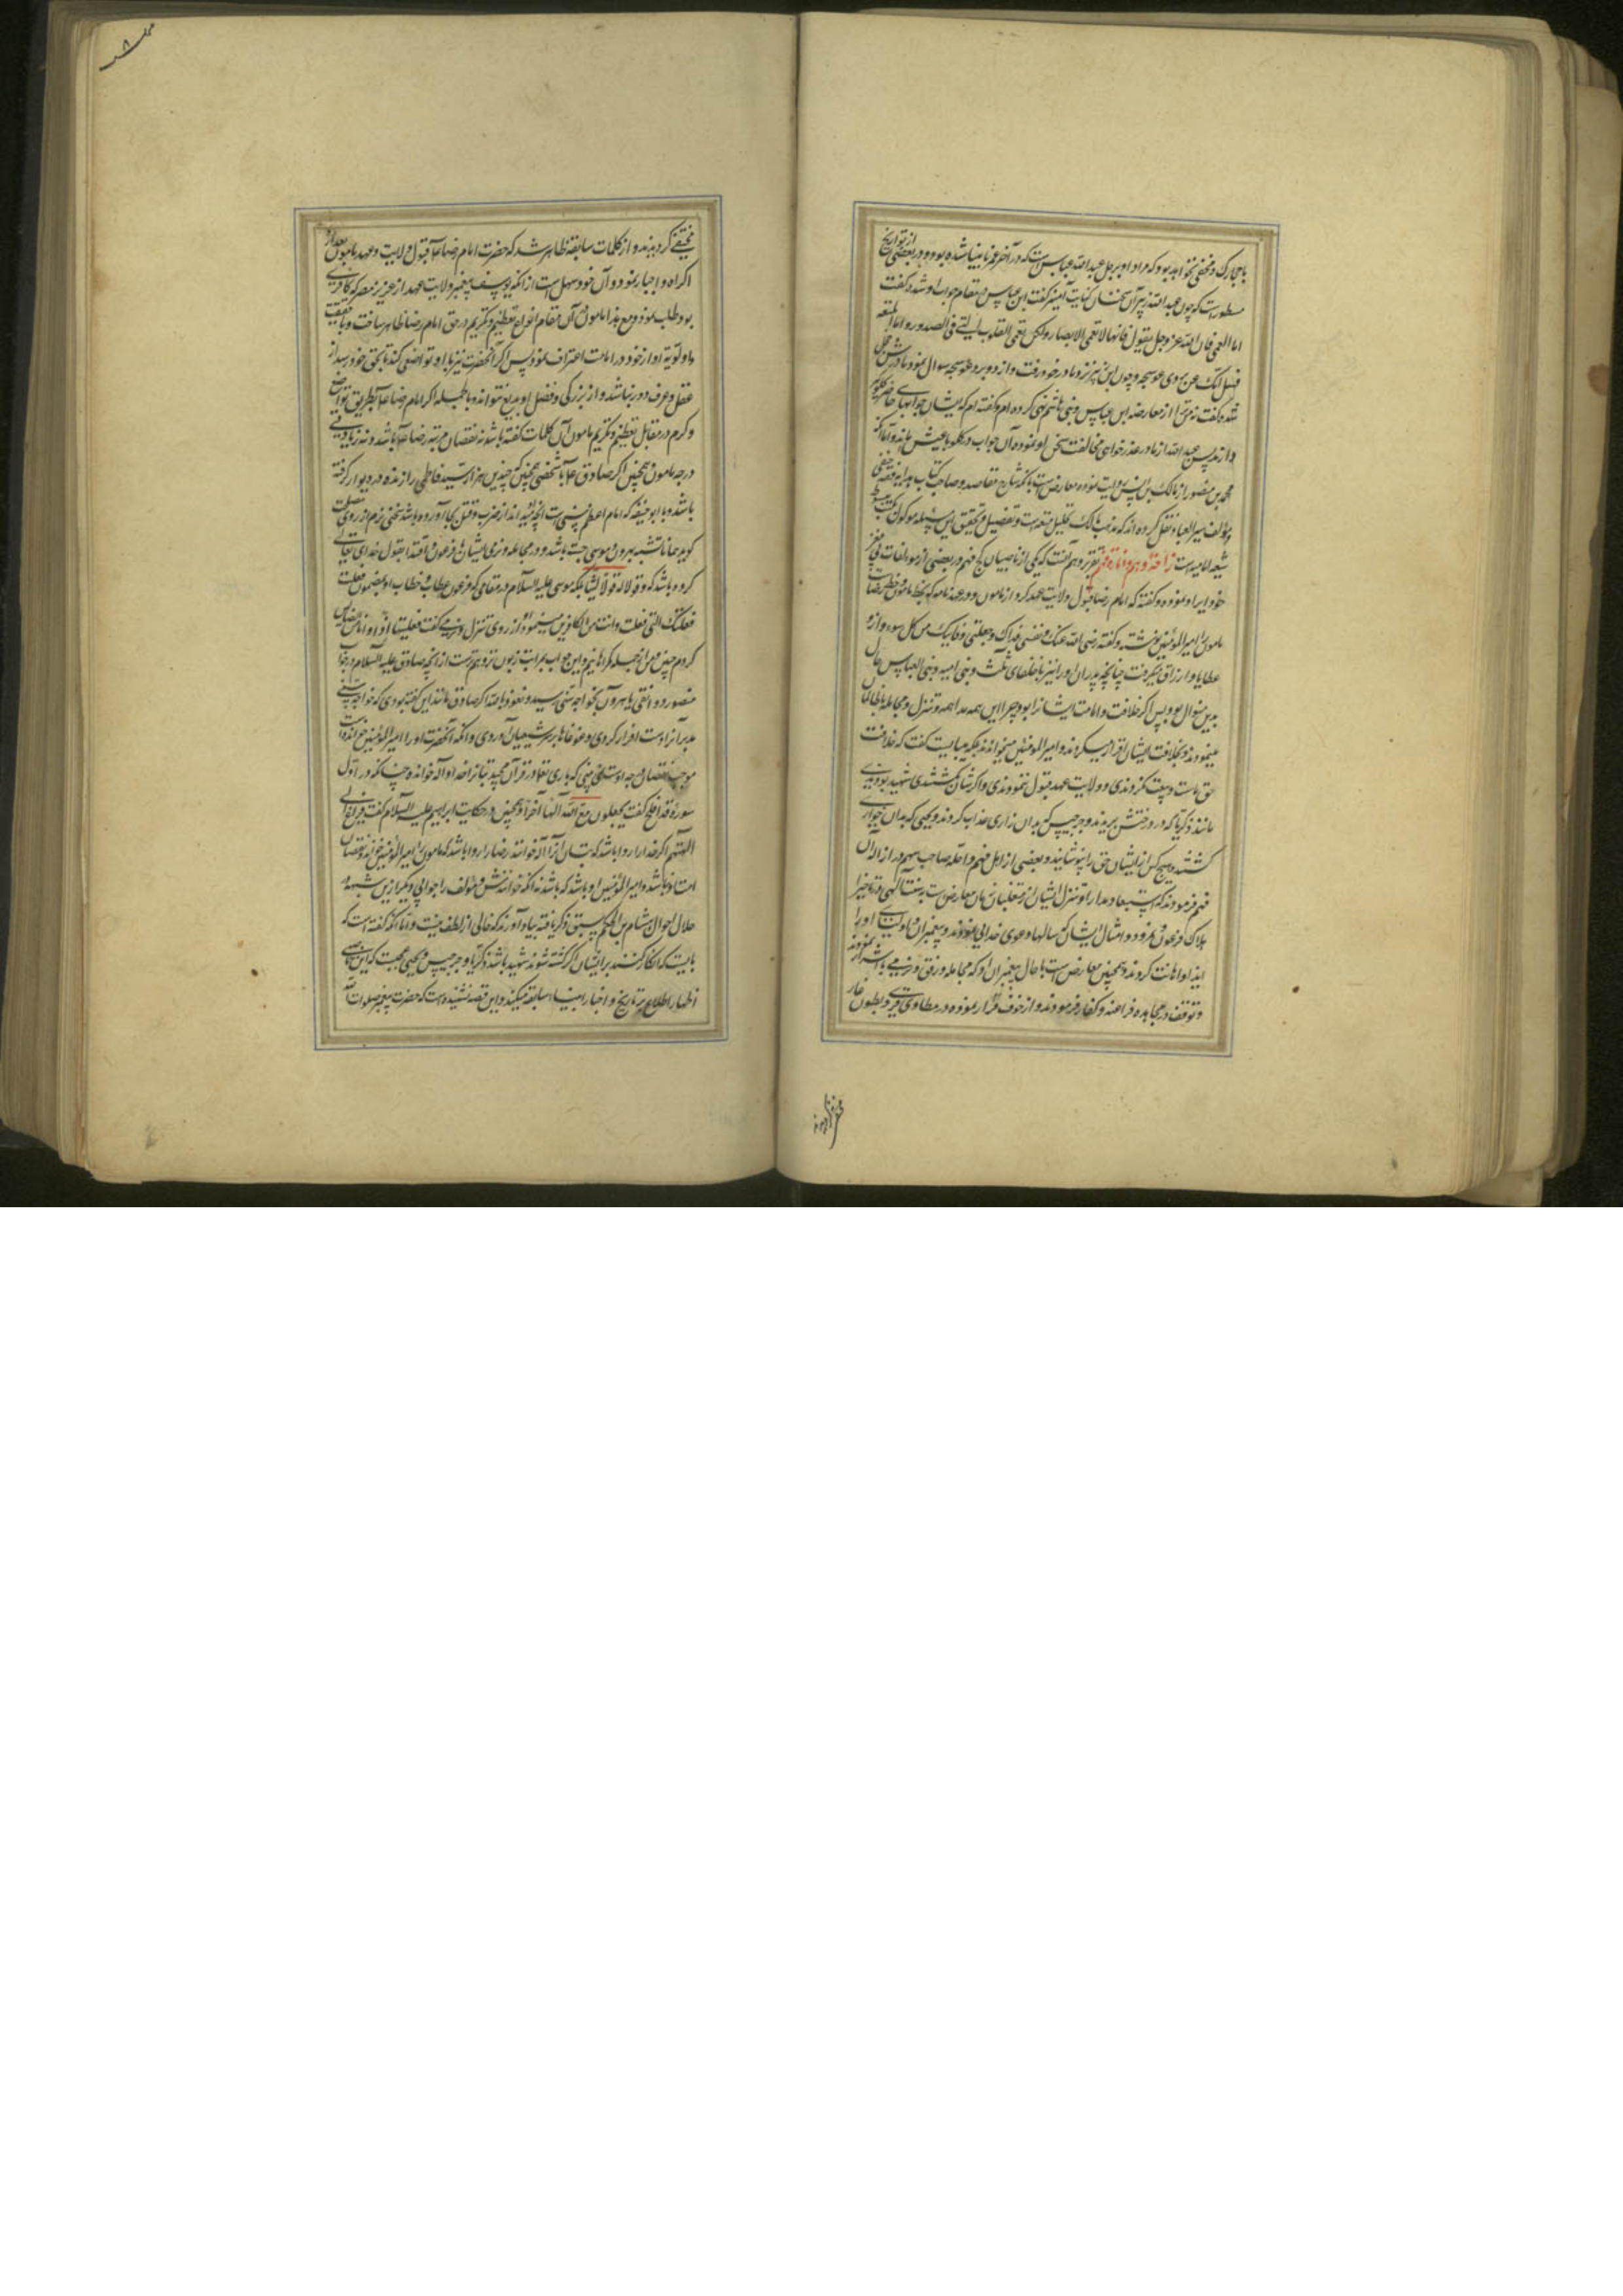 با مبارک و مخفی نخواهد بود که مراد او برجل عبدالله عباس است که در آخر عمر نابینا شده بود و در بعضی از تواریخ
مسطورست که چون عبدالله زبیر آن سخنان کنایت آمیز گفت ابن عباس در مقام جواب او شد و گفت
اما العمی فان الله عز و جل یقول فانها لا تعمی الابصار ولکن تعمی القلوب التی فی الصدور و اما المتعه
فسل امک عن بردی عوسجه و چون ابن زبیر نزد مادر خود رفت و از دو برد عوسجه سوال نمود مادرش
شده گفت نه من ترا از معارضه ابن عباس و بنی هاشم نهی کرده ام و گفته ام که ایشان جوابهای حاضر
دارند پس عبدالله از مادر عذرخواهی مخالفت سخن او نموده آن جواب در گلو
محمد بن منصور از مالک بن انس روایت نموده معارض است بانکه شارح مقاصد و صاحب کتاب هدایه فقه حنفی
و مؤلف سیر العباد نقل کرده اند که مذهب مالک تحلیل متعه است و تفصیل و تحقیق این مسئله موکول بکتب
شیعه امامیه است تقریر وهم آنست که یکی از ناصبیان کج فهم در بعضی از مؤلفات
خود ایراد نموده و گفته که امام رضا قبول ولایت عهد کرد از مامون و در عهدنامه که بخط مامون و خط رضاست
مامون را امیرالمؤمنین نوشته و گفته رضی الله عنک و نفسی فداک و جعلنی وقایتک من کل سوء و ازو
عطایا و ارزاق میگرفت چنانچه پدران او را نیز با خلفای ثلث و بنی امیه و بنی العباس حال
بدین منوال بود پس اگر خلافت و امامت ایشانرا بود چرا این همه مداهمه و تنزل و مجامله با ظالمان
مینمودند و بخلافت ایشان اقرار میکردند و امیرالمومنین میخواندند بلکه میبایست گفت که خلافت
حق ماست و بیعت نکردندی و ولایت عهد قبول ننمودندی و اگر شان بکشتندی شهید بودندی
مانند زکریا که در درختش بریدند و جرجیس که بدان زاری عذاب کردند و یحیی که بدان خواری
کشتند و هیچ کس از ایشان حق را نپوشانیدند و بعضی از اهل فهم و احله صاحب سهم در ازاله آن
فهم فرمودند که استبعاد مدارا و تنزل ایشان از متغلبان زمان معارض ست بسنت الهی در تاخیر
هلاک فرعون و نمرود و امثال ایشان که سالها دعوی خدایی نمودند و پیغمبران و اولیای او را
ایذا و اهانت کردند و همچنین معارض است با حال پیغمبران او که مجامله و رفق و نرمی با اشرار نمودند
و توقف در مجاهده فراعنه و کفار فرمودند و از خوف فرار نموده در مطاوی قری و بطون غار
مختفی گردیدند و از کلمات سابقه ظاهر شد که حضرت امام رضا علیه قبول ولایت و عهد مامون بعد از
اکراه و اجبار نمود و آن خود سهل است از آنکه یوسف پیغمبر ولایت عهد از عزیز مصر که کافری
بود طلب نمود و مع هذا مامون در آن مقام انواع تعظیم و تکریم در حق امام رضا ظاهر ساخت و باحقیت
و اولویة او از خود در امامت اعتراف نمود پس اگر آنحضرت نیز با او تواضعی کند تا بحق خود رسد از
عقل و عرف دور نباشد و از بزرگی و فضل او بدیع نتواند و بالجمله اگر امام رضا علیه بطریق تواضع
و کرم در مقابل تعظیم و تکریم مامون آن کلمات گفته باشد نه نقصان مرتبه رضا علیه باشد و نه زیادتی
درجه مامون و همچنین اگر صادق علیه با شخصی چنین که چندین هزار سید فاطمی را زنده در دیوار گرفته
باشد و با ابو حنیفه که امام اعظم سنی است آنچه شنیده اند از ضرب و قتل بجا آورده باشد سخنی نرم از روی مصلحت
گوید همانا تشبه بهرون و موسی جسته باشد و در مجامله و نرمی ایشان با فرعون و اقتدا بقول خدای تعالی
کرده باشد که و قولا له قولا لینا بلکه موسی علیه السلام در مقامی که فرعون عتاب و خطاب او بمضمون فعلت
فعلتک التی فعلت و انت من الکافرین مینمود از روی تنزل و نرمی گفت فعلتها اذا و انا من الضالین
کردم چنین و من از جمله گمراهانیم و این جواب بمراتب زبون تر و نرم ترست از آنچه صادق علیه السلام در جواب
منصور دوانقی یا هرون بخواجه سنی رسید و نعوذ بالله اگر صادق مانند این گفته بودی که خواجه سنی
مدبرانرا دست افزار کردی و غوغاها بر سر شیعیان آوردی و آنکه آنحضرت او را امیرالمؤمنین خوانده است
موجب نقصان درجه او ست نمی بینی که باری تعالی در قرآن مجید بتانرا خدا و اله خوانده چنانکه در اول
سوره قد افلح گفت یجعلون مع الله الها آخر و همچنین در حکایت ابراهیم علیه السلام گفت فراغ الی
الهتهم اگر خدا را روا باشد که بتان را اله خوانند رضا را روا باشد که مامون را امیرالمؤمنین خواند و نقصان
امامت او نباشد و امیرالمؤمنین او باشد که باشد نه آنکه خوانندش و مؤلف را جوابی دیگر از این شبهه در
خلال احوال هشام بن الحکم سبق ذکر یافته بیاد آورند که خالی از لطف نیست و اما آنکه گفته است که
بایست که انکار کنند بر ایشان اگر کشته شوند شهید باشند چون زکریا و جرجیس و یحیی عجبست که این ناصبی
اظهار اطلاع بر تاریخ و اخبار انبیاء سابقه میکند و این قصه نشنیده است که حضرت پیغمبر صلوات الله